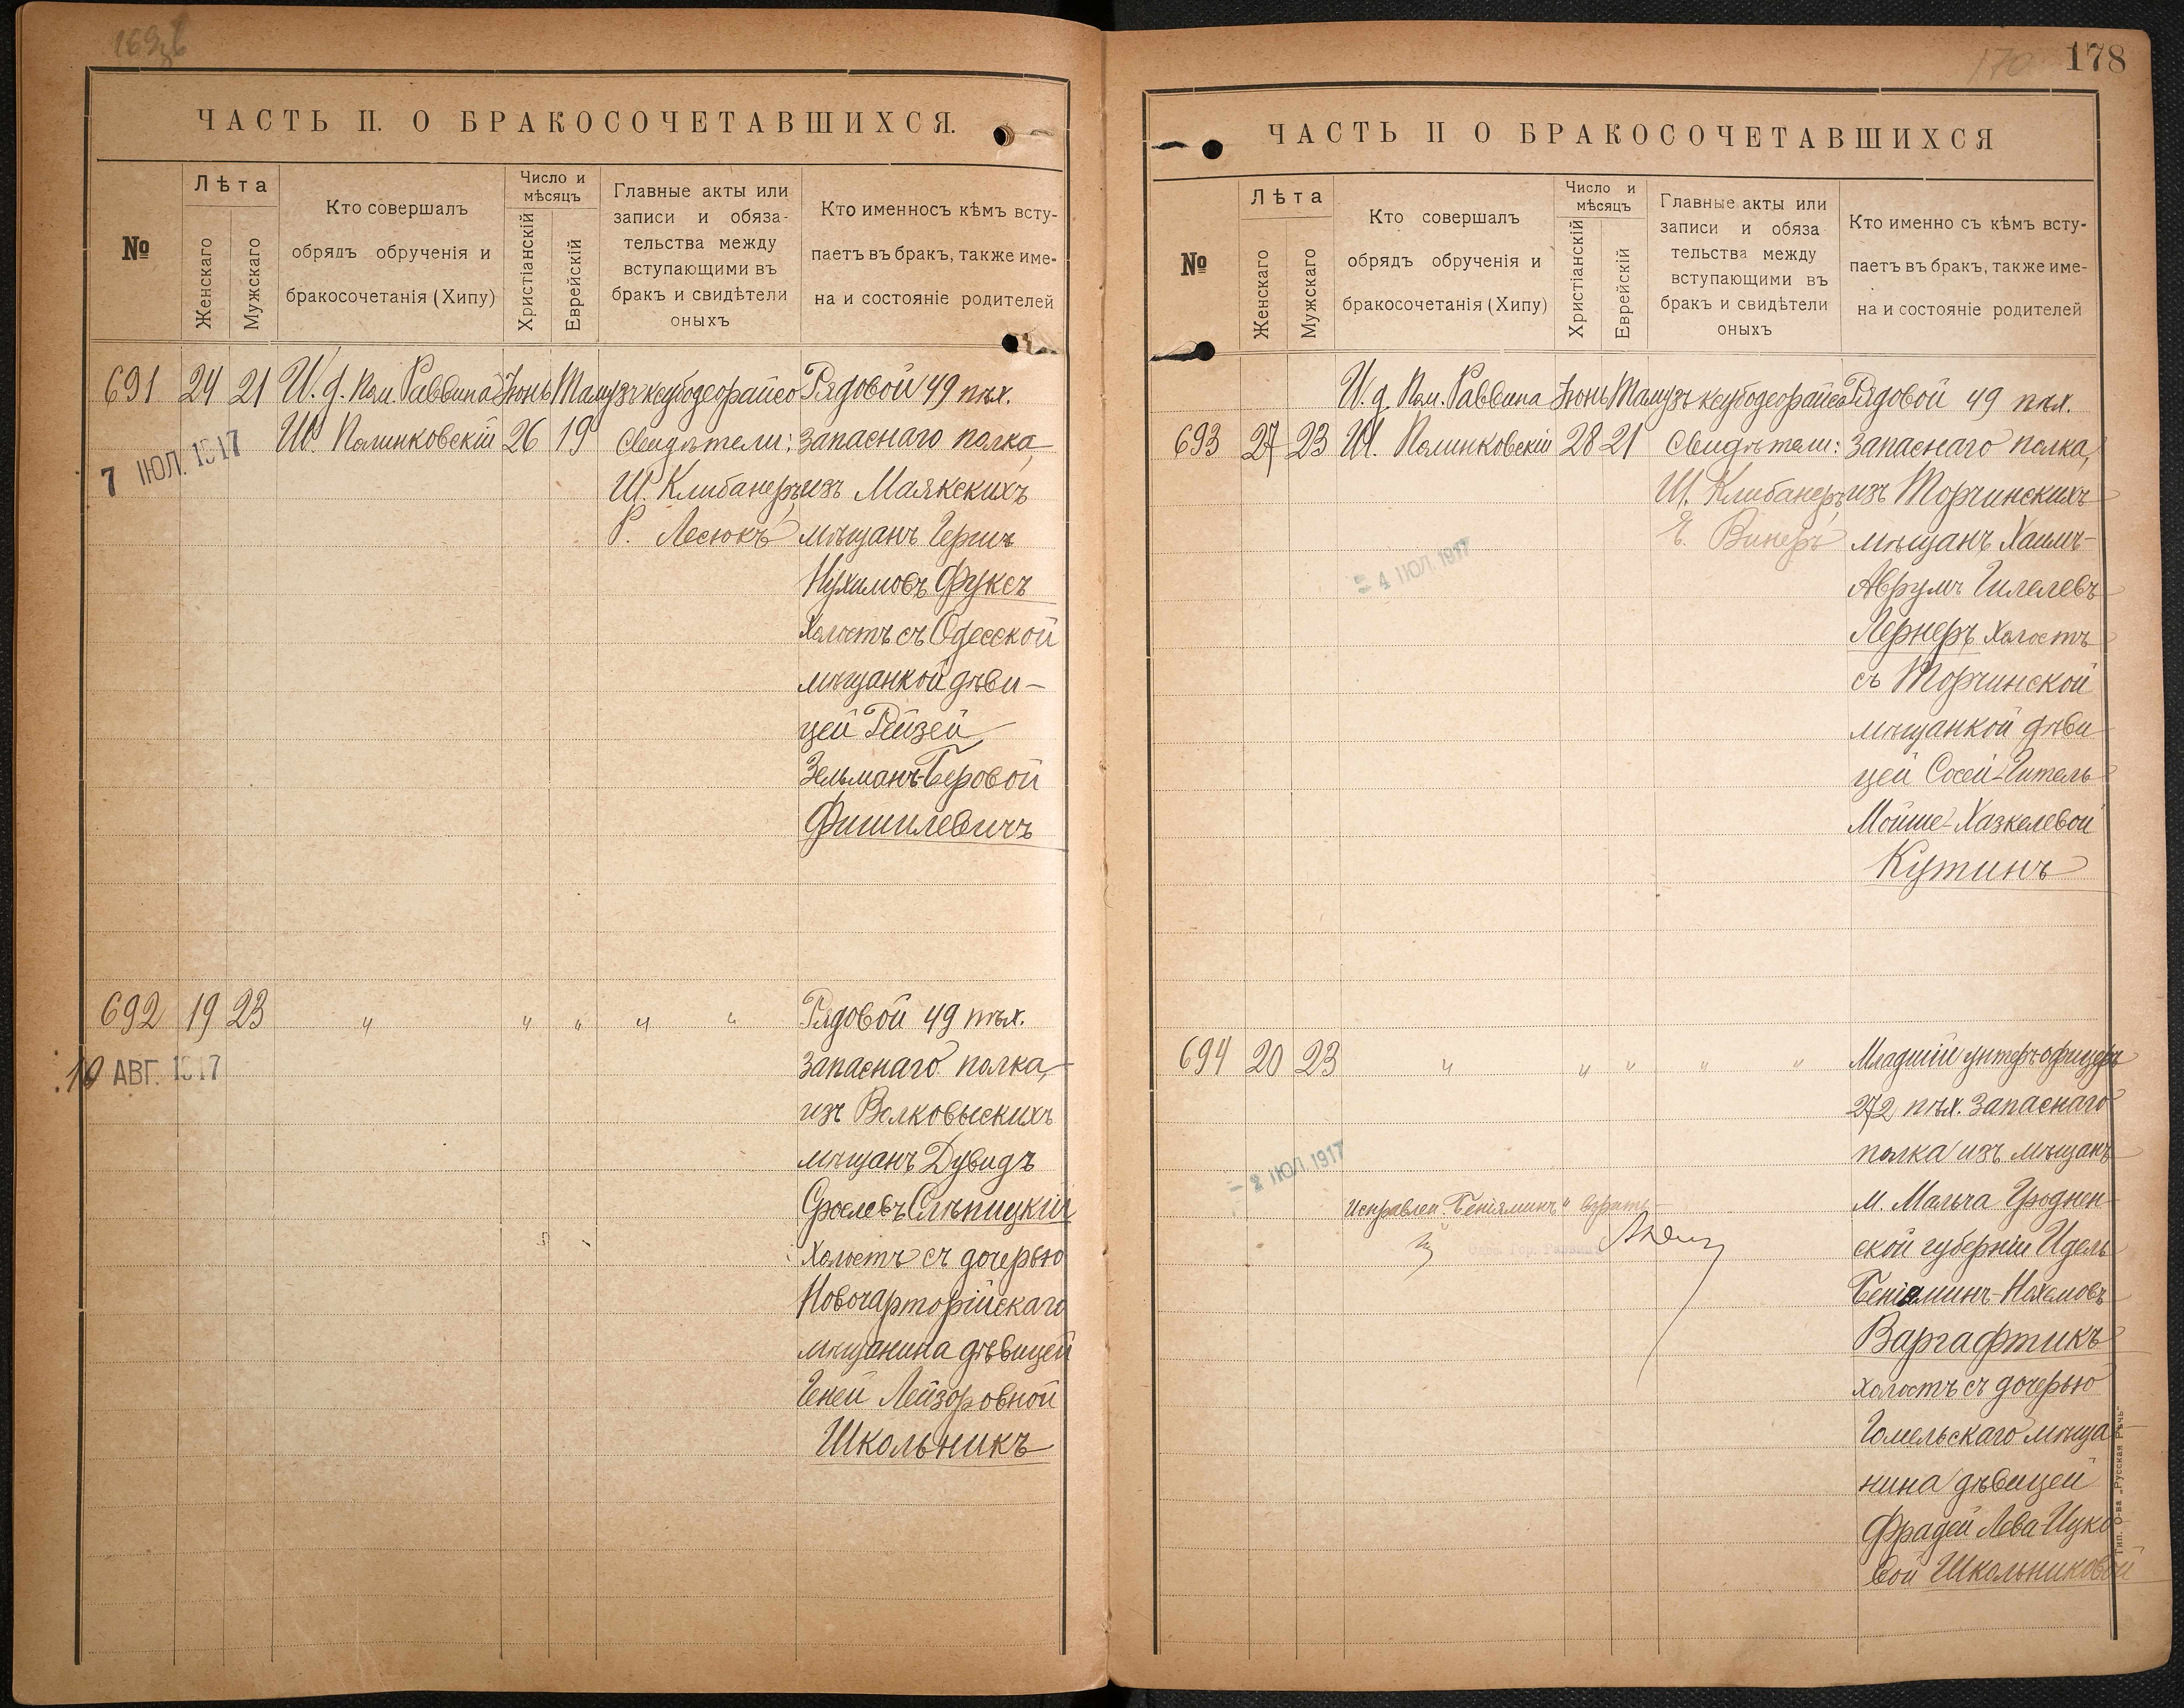 178
170
ЧАСТЬ II. О БРАКОСОЧЕТАВШИХСЯ.
№
Лѣта
Женскаго
Мужскаго
Кто совершалъ
обрядъ обрученія и
бракосочетанія (Хипу)
Число и
мѣсяцъ
Христіанскій
Еврейскій
Главные акты или
записи и обяза-
тельства между
вступающими въ
бракъ и свидѣтели
оныхъ
Кто именносъ кѣмъ всту-
паетъ въ бракъ, также име-
на и состояніе родителей
691 24 21 И. д. Пом. Раввина Іюнь Тамузъ ксубодеорайсо Рядовой 49 пѣх.
Ш. Полинковскій 26 19 Свидѣтели: запаснаго полка,
7 ІЮЛ. 1917
Ш. Клибанеръ, изъ Маякскихъ
Р. Лесюкъ мѣщанъ Гершъ
Нухимовъ Фуксъ
холостъ съ Одесской
мѣщанкой дѣви-
цей Рейзей
Зельманъ-Беровой
Фишилевичъ
692 19 23 " " " " " Рядовой 49 пѣх.
10 АВГ. 1917
запаснаго полка,
изъ Волковыскихъ
мѣщанъ Дувидъ
Сролевъ Слѣпицкій
холостъ съ дочерью
Новочарторійскаго
мѣщанина дѣвицей
Геней Лейзоровной
Школьникъ
ЧАСТЬ II О БРАКОСОЧЕТАВШИХСЯ
№
Лѣта
Женскаго
Мужскаго
Кто совершалъ
обрядъ обрученія и
бракосочетанія (Хипу)
Число и
мѣсяцъ
Христіанскій
Еврейскій
Главные акты или
записи и обяза
тельства между
вступающими въ
бракъ и свидѣтели
оныхъ
Кто именно съ кѣмъ всту-
паетъ въ бракъ, также име-
на и состояніе родителей
И. д. Пом. Раввина Іюнь Тамузъ ксубодеорайсо Рядовой 49 пѣх.
693 27 23 Ш. Полинковскій 28 21 Свидѣтели: запаснаго полка,
Ш. Клибанеръ, изъ Торчинскихъ
Е. Винеръ мѣщанъ Хаимъ-
4 ІЮЛ. 1917
Аврумъ Гилелевъ
Лернеръ холостъ
съ Торчинской
мѣщанкой дѣви
цей Сосей-Гитель
Мойше-Хазкелевой
Кутинъ
694 20 23 " " " " " Младшій унтеръ-офицеръ
272 пѣх. запаснаго
полка изъ мѣщанъ
2 ІЮЛ 1917
м. Мальча Гроднен-
Исправлен. "Беніяминъ"
ской губерніи Идель
Беніяминъ-Нохемовъ
Варгафтикъ
холостъ съ дочерью
Гомельскаго мѣща-
нина дѣвицей
Фрадей Лева-Ицко-
вой Школьниковой
Тип. О-ва „Русская Рѣчь“